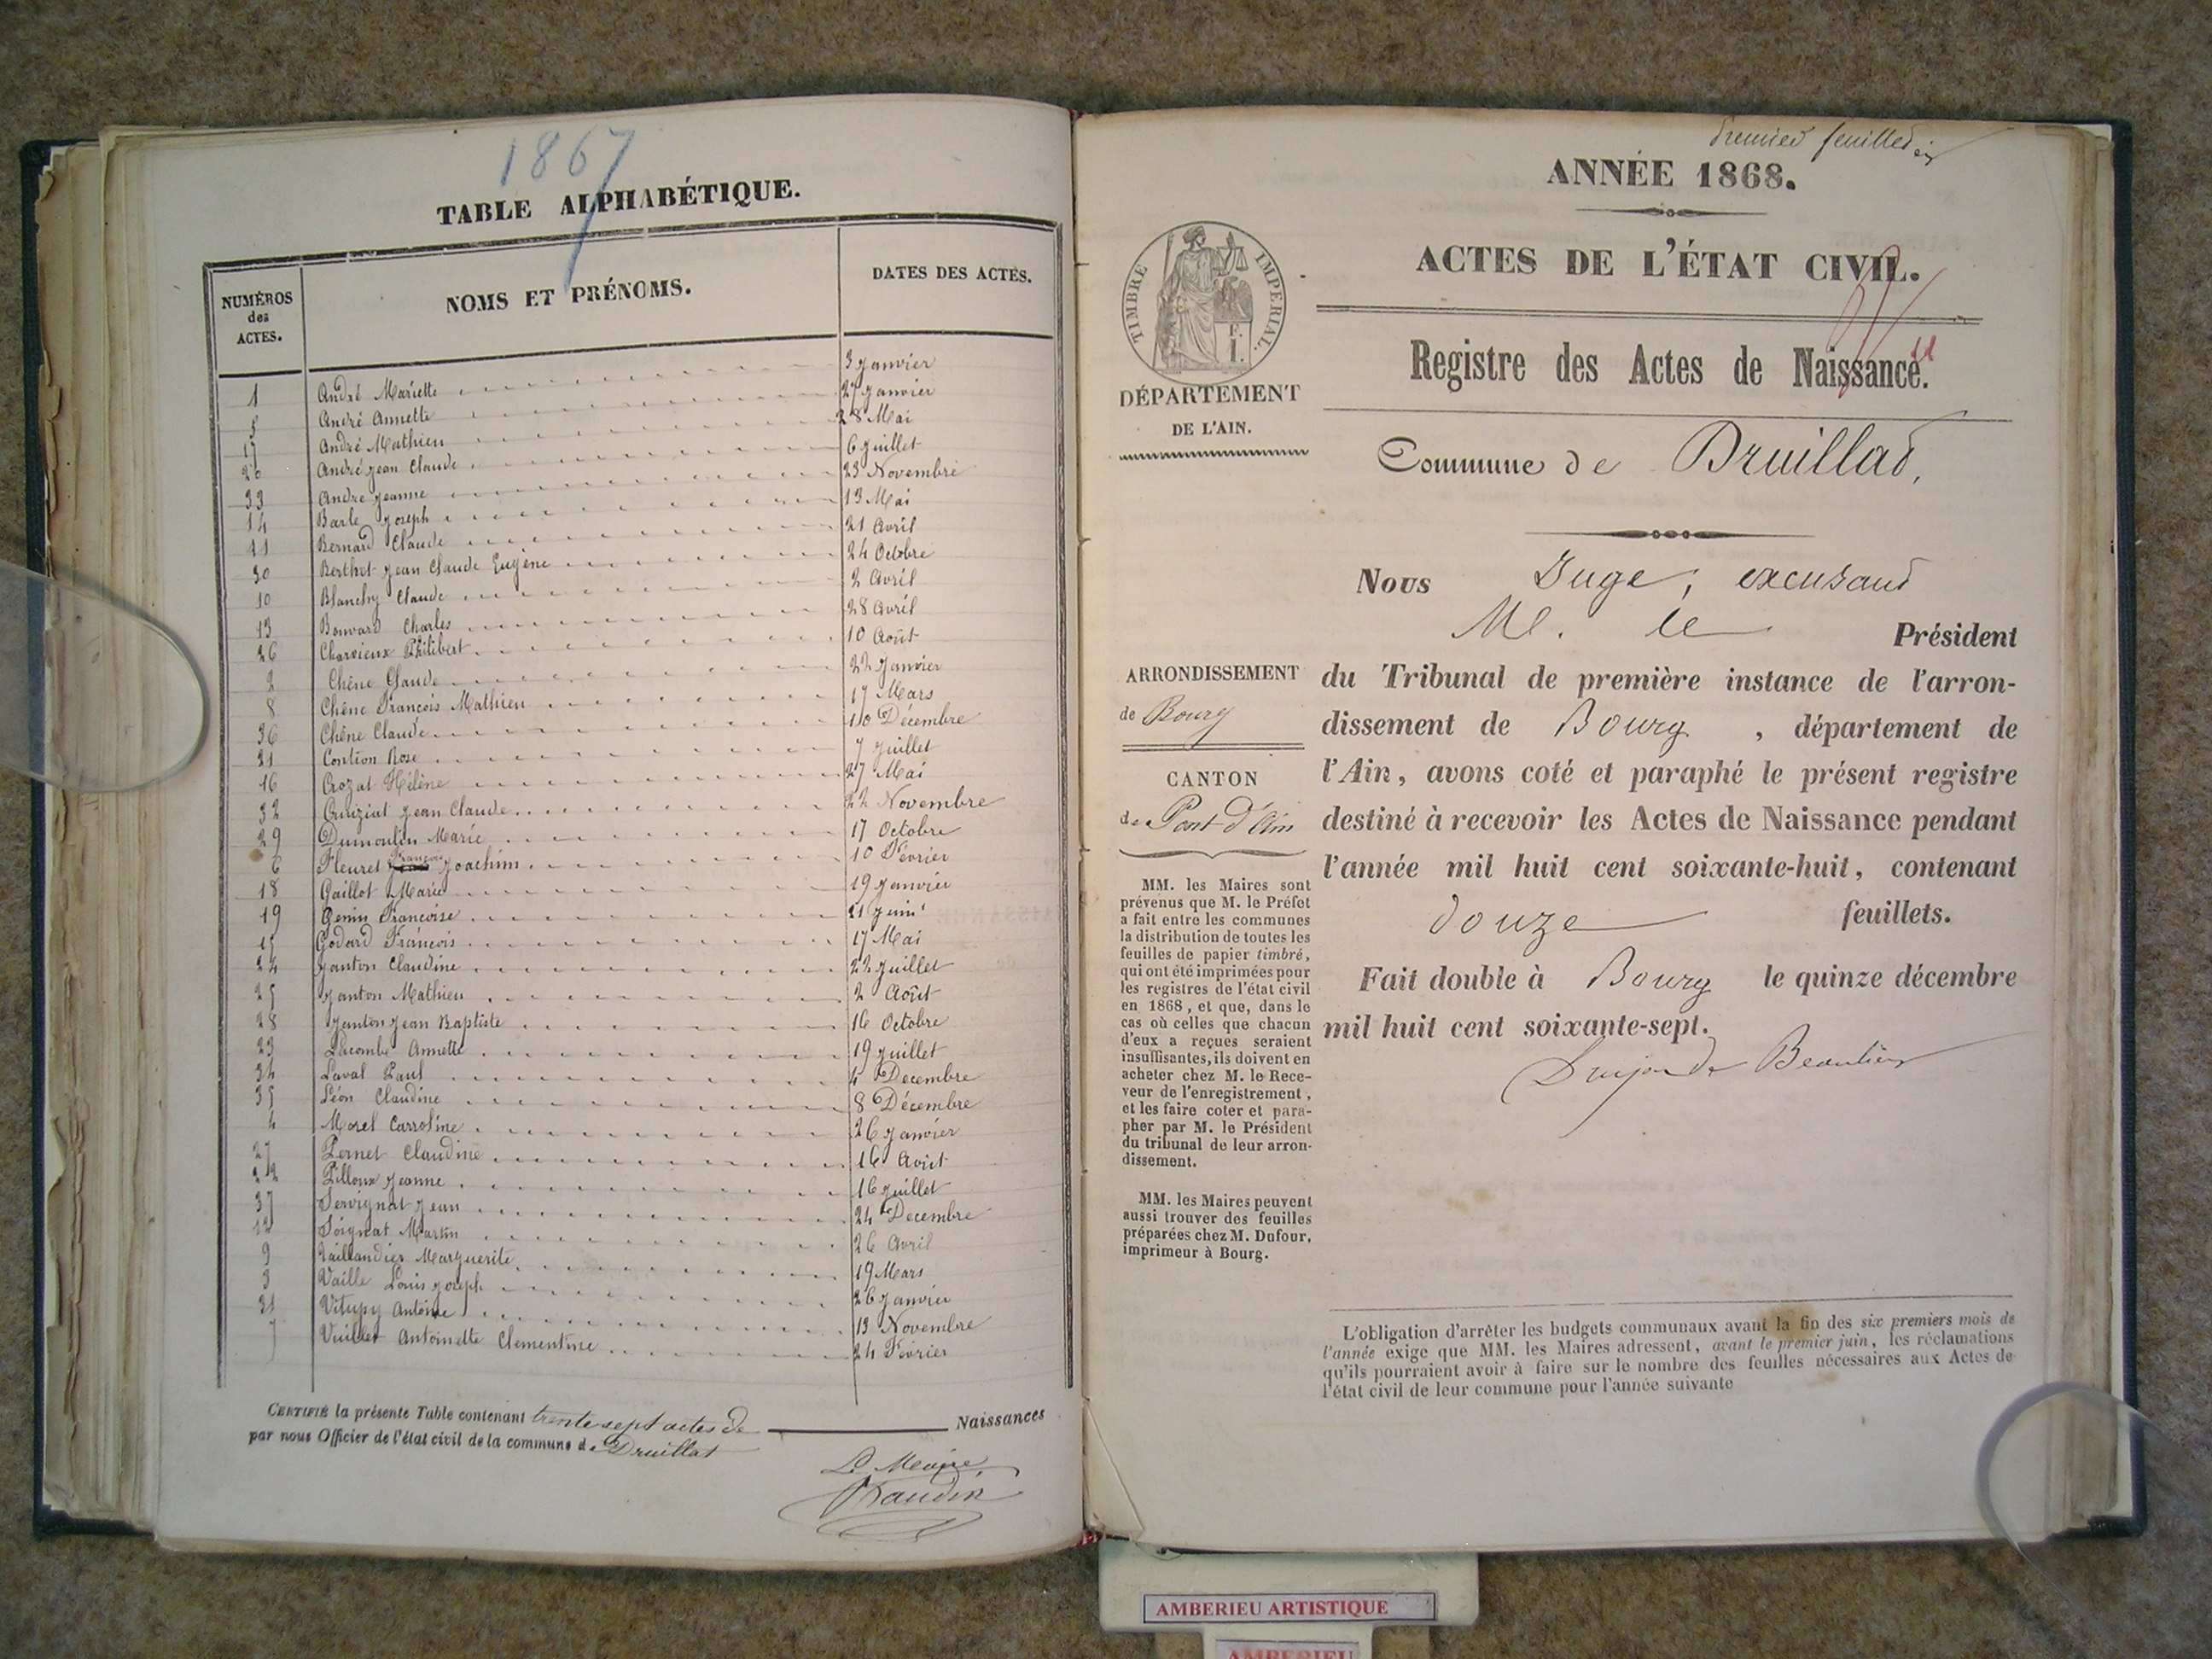 1867
TABLE ALPHABÉTIQUE.
NUMÉROS des ACTES. NOMS ET PRÉNOMS. DATES DES ACTES.
1 André Mariette 3 Janvier
5 André Annette 27 Janvier
17 André Mathieu 28 Mai
20 André Jean Claude 6 Juillet
33 André Jeanne 23 Novembre
14 Barle Joseph 13 Mai
11 Bernard Claude 21 Avril
30 Berthet Jean Claude Eugène 24 Octobre
10 Blanchy Claude 2 Avril
13 Bouvard Charles 28 Avril
26 Charvieux Philibert 10 Août
2 Chêne Claude 22 Janvier
8 Chêne François Mathieu 17 Mars
36 Chêne Claude 10 Décembre
21 Contion Rose 7 Juillet
16 Crozat Hélène 27 Mai
32 Cruiziat Jean Claude 22 Novembre
29 Dumoulin Marie 17 Octobre
6 Fleuret François Joachim 10 Fevrier
18 Gaillot Marie 19 Janvier
19 Genin Françoise 21 Juin
15 Godard François 17 Mai
24 Janton Claudine 22 Juillet
25 Janton Mathieu 2 Août
28 Janton Jean Baptiste 16 Octobre
23 Lacombe Annette 19 Juillet
34 Laval Paul 4 Decembre
35 Léon Claudine 8 Décembre
4 Morel Carroline 26 Janvier
27 Pernet Claudine 16 Août
22 Pilloux Jeanne 16 Juillet
37 Servignat Jean 24 Decembre
12 Soignat Martin 26 Avril
9 Taillandier Marguerite 19 Mars
3 Vaille Louis Joseph 26 Janvier
31 Vitupy Antoine 13 Novembre
7 Vuillet Antoinette Clementine 24 Fevrier
CERTIFIÉ la présente Table contenant trente sept actes de Naissances
par nous Officier de l'état civil de la commune de Druillat
Le Maire,
Premier feuillet
ANNÉE 1868.
ACTES DE L'ÉTAT CIVIL.
Registre des Actes de Naissance.
TIMBRE IMPERIAL.
F.
I.
DÉPARTEMENT
DE L'AIN.
Commune de Druillat,
Nous Juge, excusant
M. le Président
du Tribunal de première instance de l'arron-
dissement de Bourg, département de
l'Ain, avons coté et paraphé le présent registre
destiné à recevoir les Actes de Naissance pendant
l'année mil huit cent soixante-huit, contenant
douze feuillets.
Fait double à Bourg le quinze décembre
mil huit cent soixante-sept.
ARRONDISSEMENT
de Bourg
CANTON
de Pont-d'Ain
MM. les Maires sont
prévenus que M. le Préfet
a fait entre les communes
la distribution de toutes les
feuilles de papier timbré,
qui ont été imprimées pour
les registres de l'état civil
en 1868, et que, dans le
cas où celles que chacun
d'eux a reçues seraient
insuffisantes, ils doivent en
acheter chez M. le Rece-
veur de l'enregistrement,
et les faire coter et para-
pher par M. le Président
du tribunal de leur arron-
dissement.
MM. les Maires peuvent
aussi trouver des feuilles
préparées chez M. Dufour,
imprimeur à Bourg.
L'obligation d'arrêter les budgets communaux avant la fin des six premiers mois de
l'année exige que MM. les Maires adressent, avant le premier juin, les réclamations
qu'ils pourraient avoir à faire sur le nombre des feuilles nécessaires aux Actes de
l'état civil de leur commune pour l'année suivante
AMBERIEU ARTISTIQUE
AMBERIEU